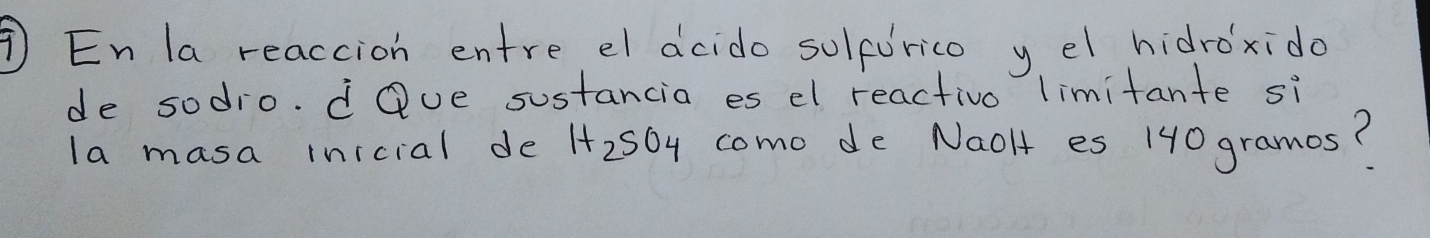 9) En la reacción entre el ácido sulfúrico y el hidróxido
de sodio. ¿Que sustancia es el reactivo limitante si
la masa inicial de H2SO4 como de NaOH es 140 gramos?